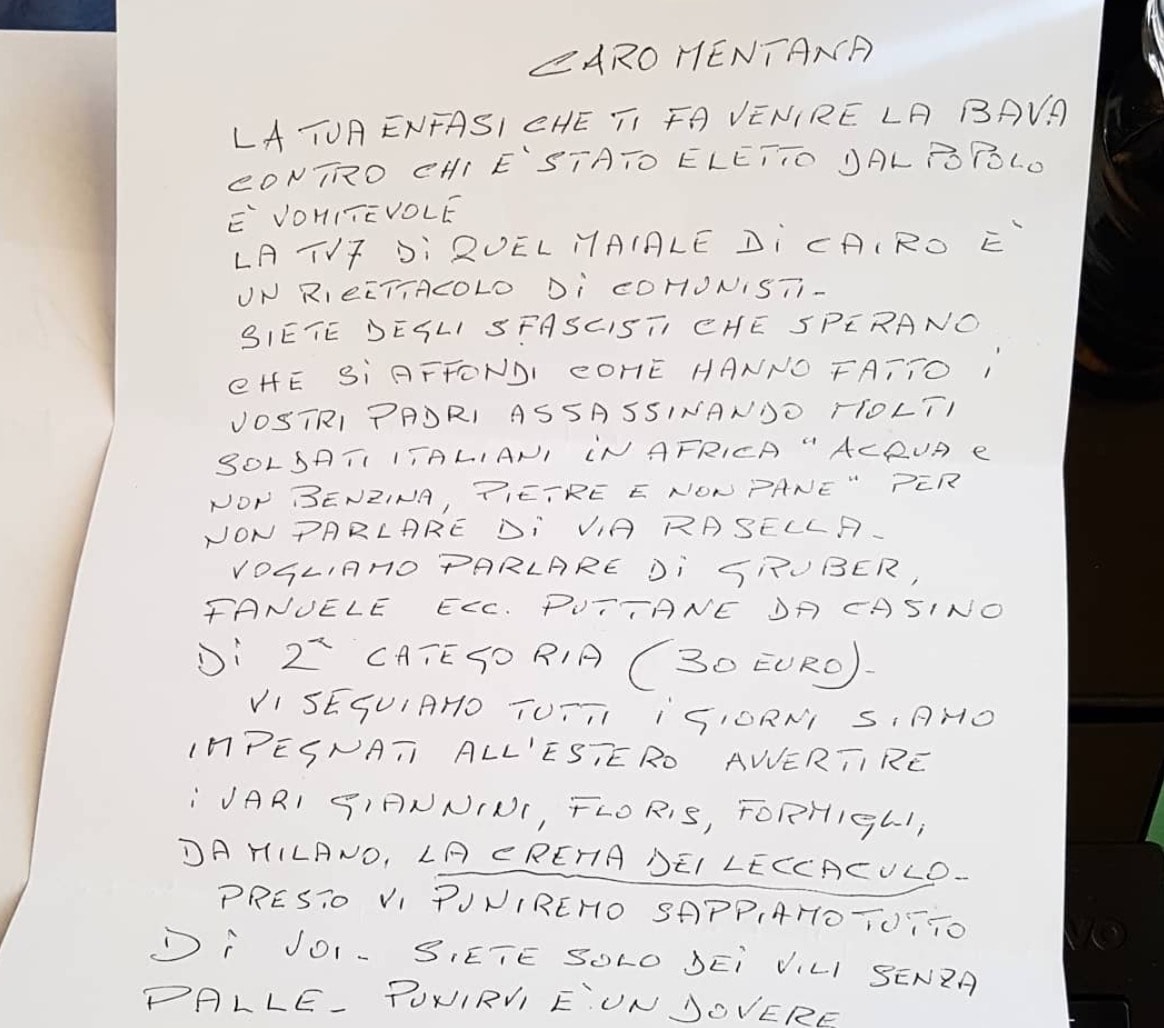 CARO MENTANA
LA TUA ENFASI CHE TI FA VENIRE LA BAVA
CONTRO CHI E' STATO ELETTO DAL POPOLO
E' VOMITEVOLE
LA TV7 Di QUEL MAIALE Di CAIRO E'
UN RICETTACOLO Di COMUNISTI-
SIETE DEGLI SFASCISTI CHE SPERANO
CHE Si AFFONDI COME HANNO FATTO i
VOSTRI PADRI ASSASSINANDO MOLTI
SOLDATI ITALIANI iN AFRICA "ACQUA e
NON BENZINA, PIETRE E NON PANE" PER
NON PARLARE Di VIA RASELLA-
VOGLIAMO PARLARE Di GRUBER,
FANUELE ECC. PUTTANE DA CASINO
Di 2ª CATEGORIA (30 EURO)-
VI SEGUIAMO TUTTI i GIORNI SIAMO
IMPEGNATI ALL'ESTERO AVVERTIRE
i VARI GIANNINI, FLORIS, FORMIGLI,
DA MILANO, LA CREMA DEI LECCACULO-
PRESTO VI PUNIREMO SAPPIAMO TUTTO
Di VOI- SIETE SOLO DEi VILI SENZA
PALLE- PUNIRVI E' UN DOVERE